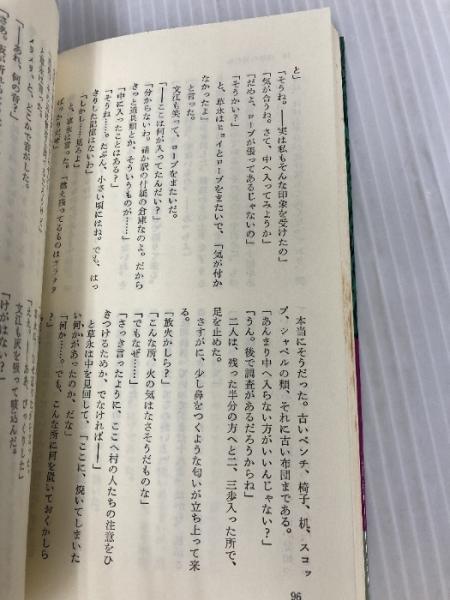 と」
「そうね。――実は私もそんな印象を受けたの」
「気が合うね。さて、中へ入ってみようか」
「だめよ、ロープが張ってあるじゃないの」
「そうかい？」
と、草永はヒョイとロープをまたいで、「気が付か
なかったよ」
と言った。
文江も笑って、ロープをまたいだ。
「――ここは何が入ってたんだい？」
「分からないわ。確か駅の付属の倉庫なのよ。だから
きっと道具類とか、そういうものが……」
「中に入ったことはある？」
「そうね……。たぶん、小さい頃にはね。でも、はっ
きりした記憶はないわ」
「しかし……見ろよ」
と、草永は言った。「燃え残ってるものはガラクタ
ばっかりだ」
本当にそうだった。古いベンチ、椅子、机、スコッ
プ、シャベルの類、それに古い布団まである。
「あんまり中へ入らない方がいいんじゃない？」
「うん。後で調査があるだろうからね」
二人は、残った半分の方へと二、三歩入った所で、
足を止めた。
さすがに、少し鼻をつくような匂いが立ち上って来
る。
「放火かしら？」
「こんな所、火の気はなさそうだものな」
「でもなぜ……」
「さっき言ったように、ここへ村の人たちの注意をひ
きつけるためか、でなければ――」
と草永は中を見回して、「ここに、焼いてしまいた
い何かがあったのか、だな」
「何か……。でも、こんな所に何を置いておくかしら
？」
「――あれ、何の音？」
文江も灰を吸って咳込んだ。
「けがはない？」
96